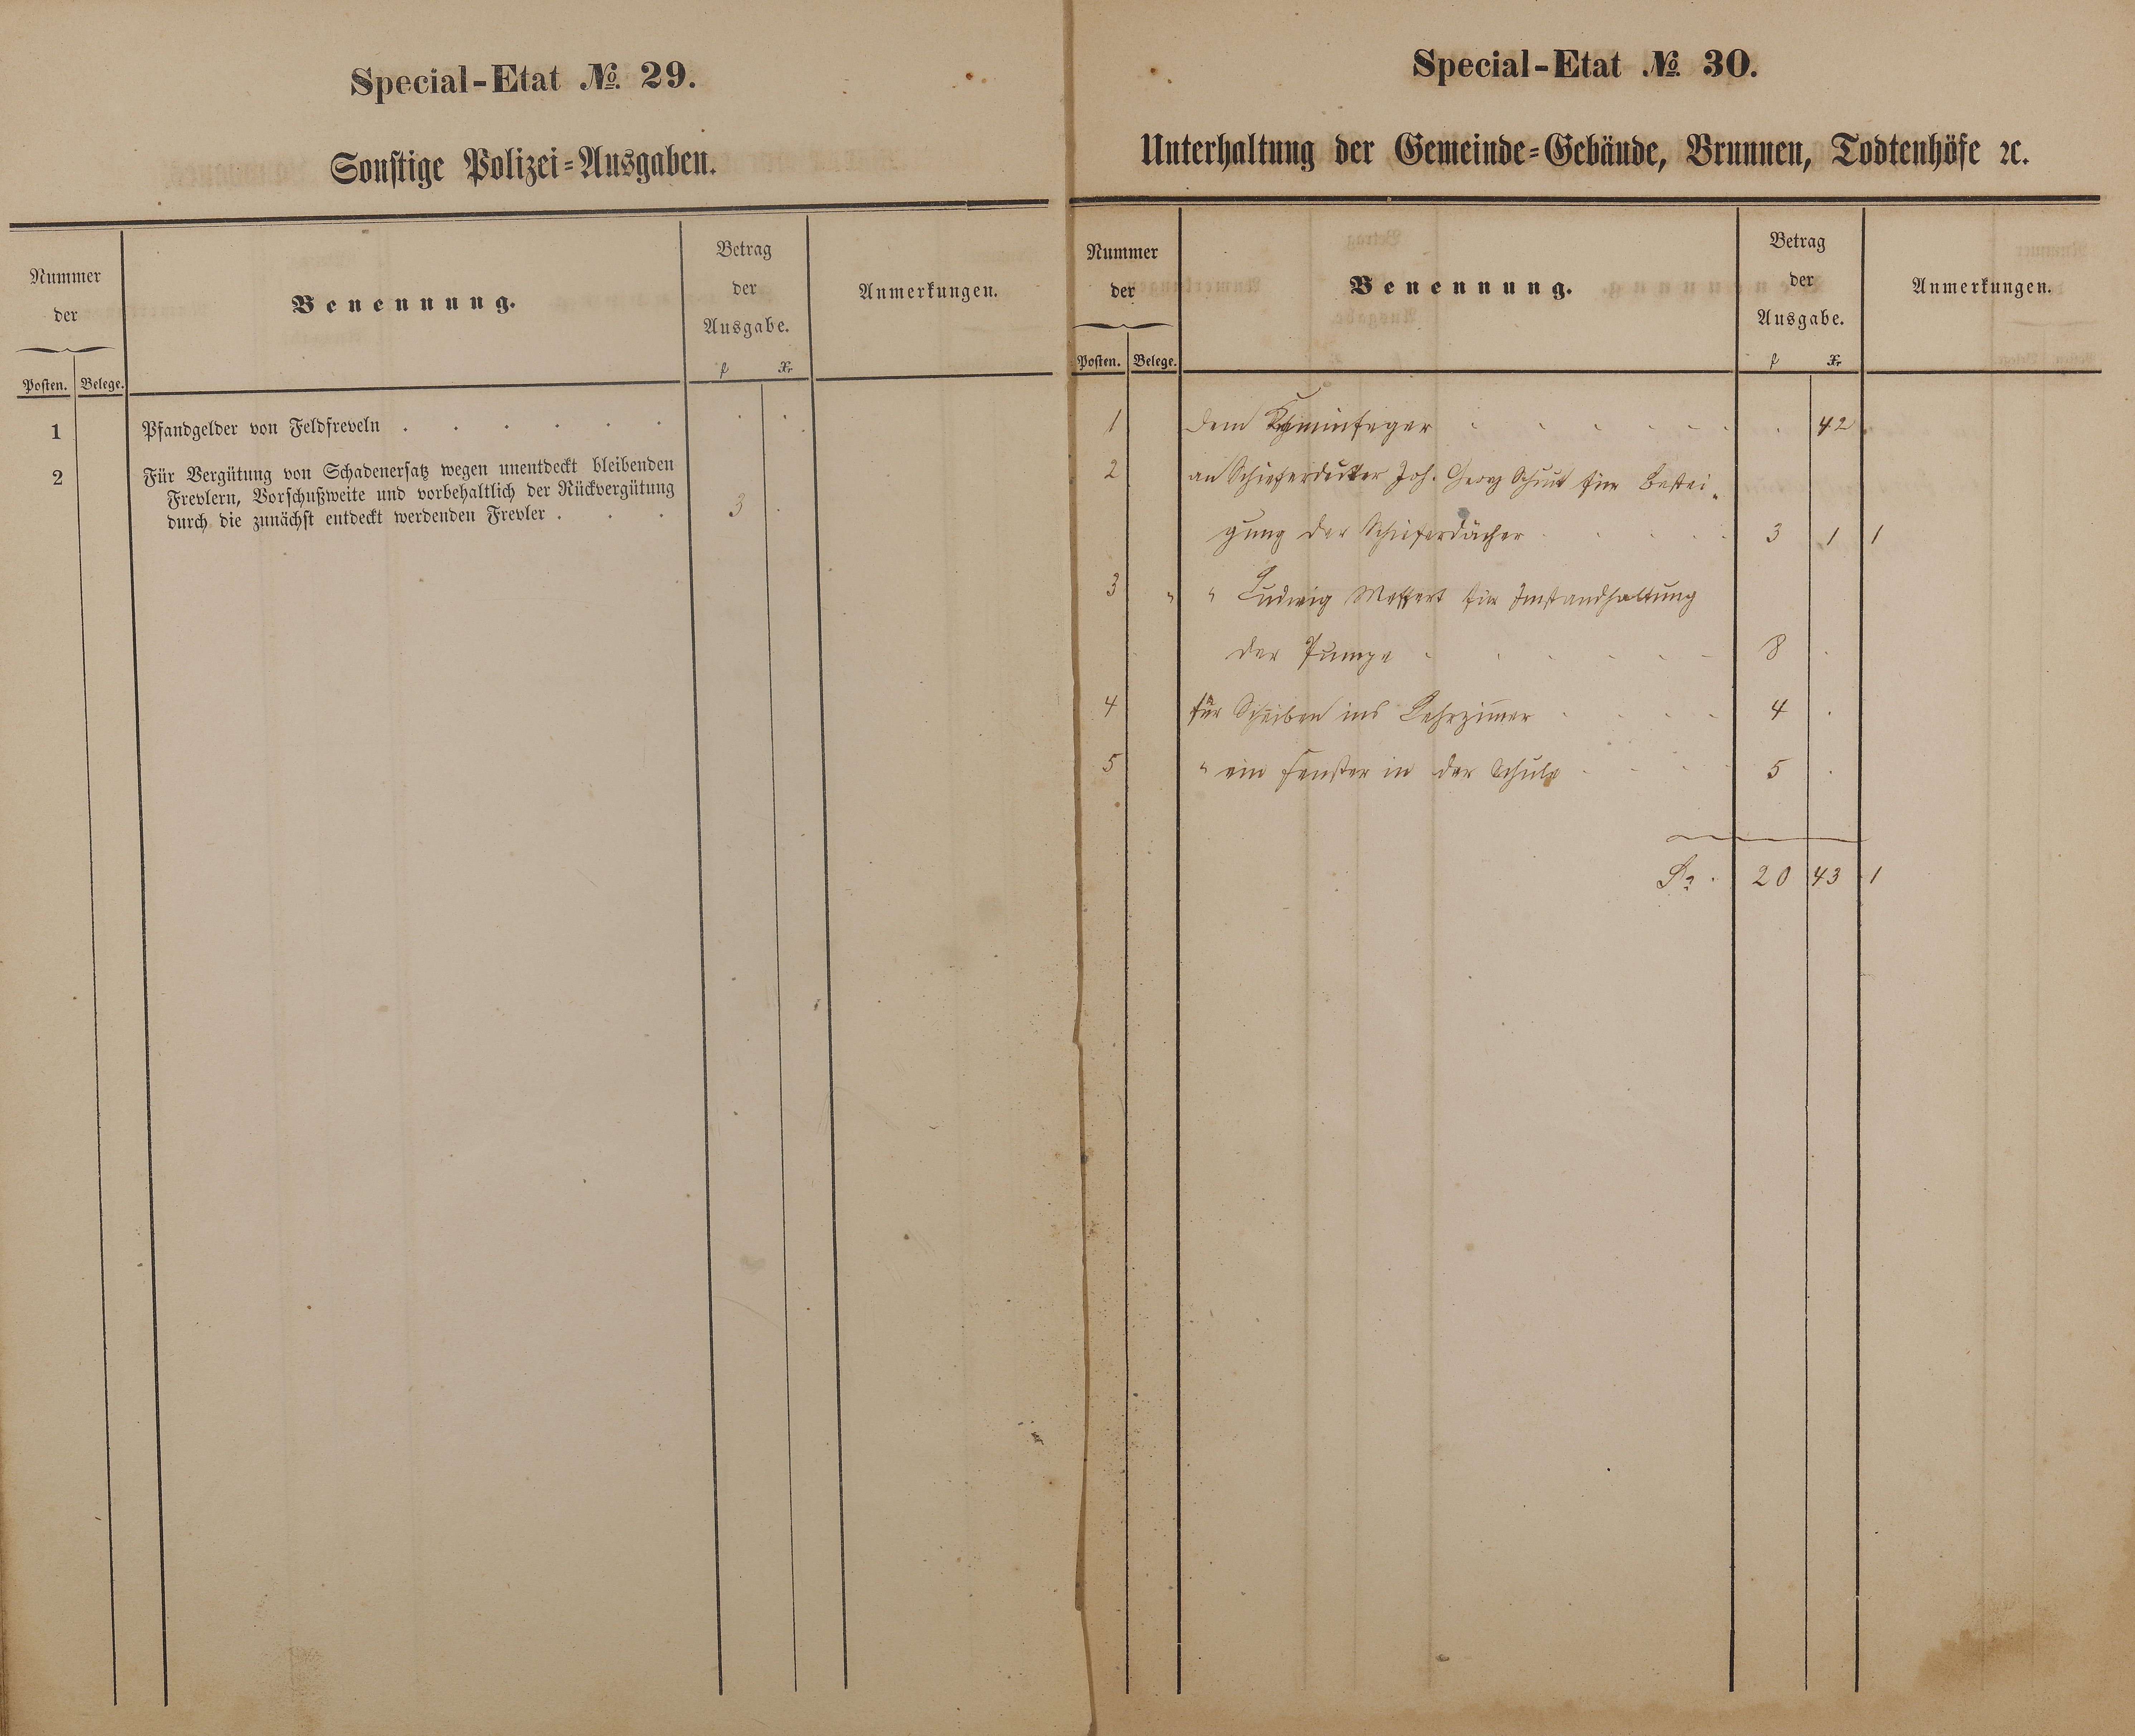 Special-Etat № 29.
Sonstige Polizei-Ausgaben.
Nummer
der
Posten. Belege.
Benennung.
Betrag
der
Ausgabe.
f Xr
Anmerkungen.
1 Pfandgelder von Feldfreveln . . . . . . . .
2 Für Vergütung von Schadenersatz wegen unentdeckt bleibenden
Frevlern, Vorschußweite und vorbehaltlich der Rückvergütung
durch die zunächst entdeckt werdenden Frevler . . . 3 .
Special-Etat № 30.
Unterhaltung der Gemeinde-Gebäude, Brunnen, Todtenhöfe ꝛc.
Nummer
der
Posten. Belege.
Benennung.
Betrag
der
Ausgabe.
f Xr
Anmerkungen.
1 dem Kaminfeger . . . . . . . 42
2 an Schieferdecker Joh. Georg für Bestei-
gung der Schieferdächer . . . . . 3 1 1
3 " " Ludwig für Instandhaltung
der Pumpe . . . . . . 8 .
4 für Scheiben ins Lehrzimmer . . . . 4 .
5 " ein Fenster in der Schule . . . . 5 .
20 43 1